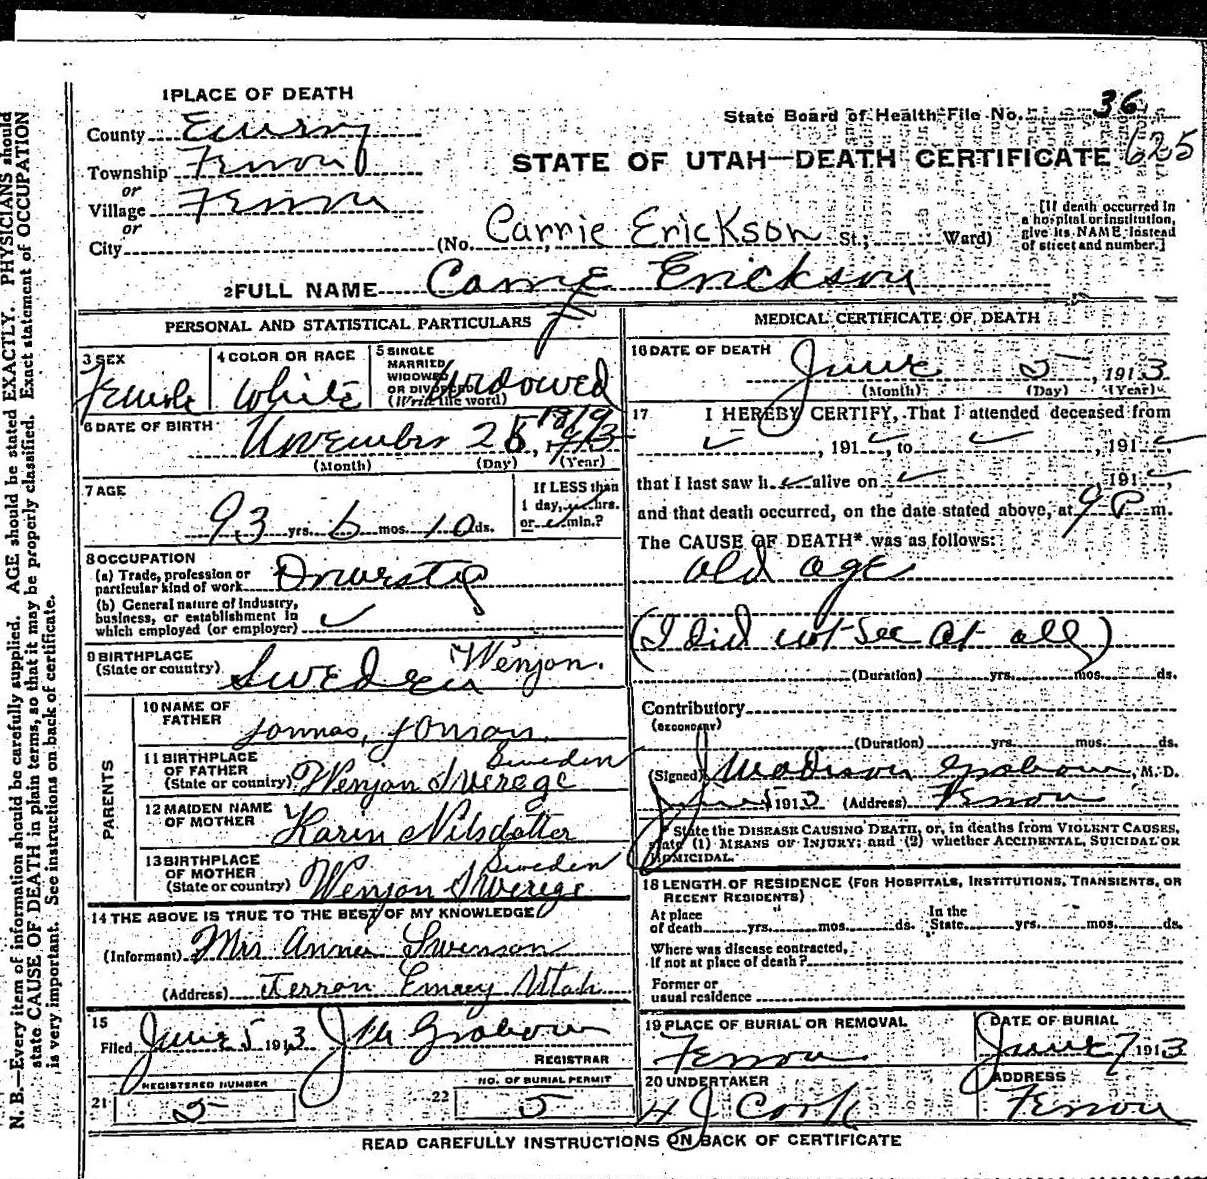 1 PLACE OF DEATH
County Emery
Township Ferron
or
Village Ferron
or
City
State Board of Health File No. 36
STATE OF UTAH—DEATH CERTIFICATE 625
(No. Carrie Erickson St.; Ward)
[If death occurred in a hospital or institution, give its NAME instead of street and number.]
2 FULL NAME Carrie Erickson
PERSONAL AND STATISTICAL PARTICULARS
3 SEX
Female
4 COLOR OR RACE
White
5 SINGLE MARRIED WIDOWED OR DIVORCED (Write the word)
Widowed
6 DATE OF BIRTH
November 28, 1819
(Month) (Day) (Year)
7 AGE
93 yrs. 6 mos. 10 ds.
If LESS than 1 day, hrs. or min.?
8 OCCUPATION
(a) Trade, profession or particular kind of work
(b) General nature of industry, business, or establishment in which employed (or employer)
9 BIRTHPLACE
(State or country) Sweden Wenjan.
PARENTS
10 NAME OF FATHER
Jonnas, Jonson.
11 BIRTHPLACE OF FATHER
(State or country) Wenjan Swerege Sweden
12 MAIDEN NAME OF MOTHER
Karin Nilsdotter
13 BIRTHPLACE OF MOTHER
(State or country) Wenjan Swerege Sweden
14 THE ABOVE IS TRUE TO THE BEST OF MY KNOWLEDGE
(Informant) Mrs Anna Swenson
(Address) Ferron Emery Utah
15
Filed June 5 1913 J M Grabow
REGISTRAR
REGISTERED NUMBER
21 5
NO. OF BURIAL PERMIT
22 5
MEDICAL CERTIFICATE OF DEATH
16 DATE OF DEATH
June 5, 1913
(Month) (Day) (Year)
17 I HEREBY CERTIFY, That I attended deceased from
, 191 , to , 191 ,
that I last saw h alive on , 191 ,
and that death occurred, on the date stated above, at 9 P m.
The CAUSE OF DEATH* was as follows:
old age
(I did not see at all)
(Duration) yrs. mos. ds.
Contributory
(SECONDARY)
(Duration) yrs. mos. ds.
(Signed) J Madison Grabow, M.D.
June 5 1913 (Address) Ferron
* State the DISEASE CAUSING DEATH, or, in deaths from VIOLENT CAUSES,
state (1) MEANS OF INJURY; and (2) whether ACCIDENTAL, SUICIDAL OR
HOMICIDAL.
18 LENGTH OF RESIDENCE (FOR HOSPITALS, INSTITUTIONS, TRANSIENTS, OR
RECENT RESIDENTS)
At place of death yrs. mos. ds. In the State yrs. mos. ds.
Where was disease contracted,
If not at place of death?
Former or
usual residence
19 PLACE OF BURIAL OR REMOVAL
Ferron
DATE OF BURIAL
June 7 1913
20 UNDERTAKER
J Cook
ADDRESS
Ferron
READ CAREFULLY INSTRUCTIONS ON BACK OF CERTIFICATE
N. B.—Every item of information should be carefully supplied. AGE should be stated EXACTLY. PHYSICIANS should
state CAUSE OF DEATH in plain terms, so that it may be properly classified. Exact statement of OCCUPATION
is very important. See instructions on back of certificate.